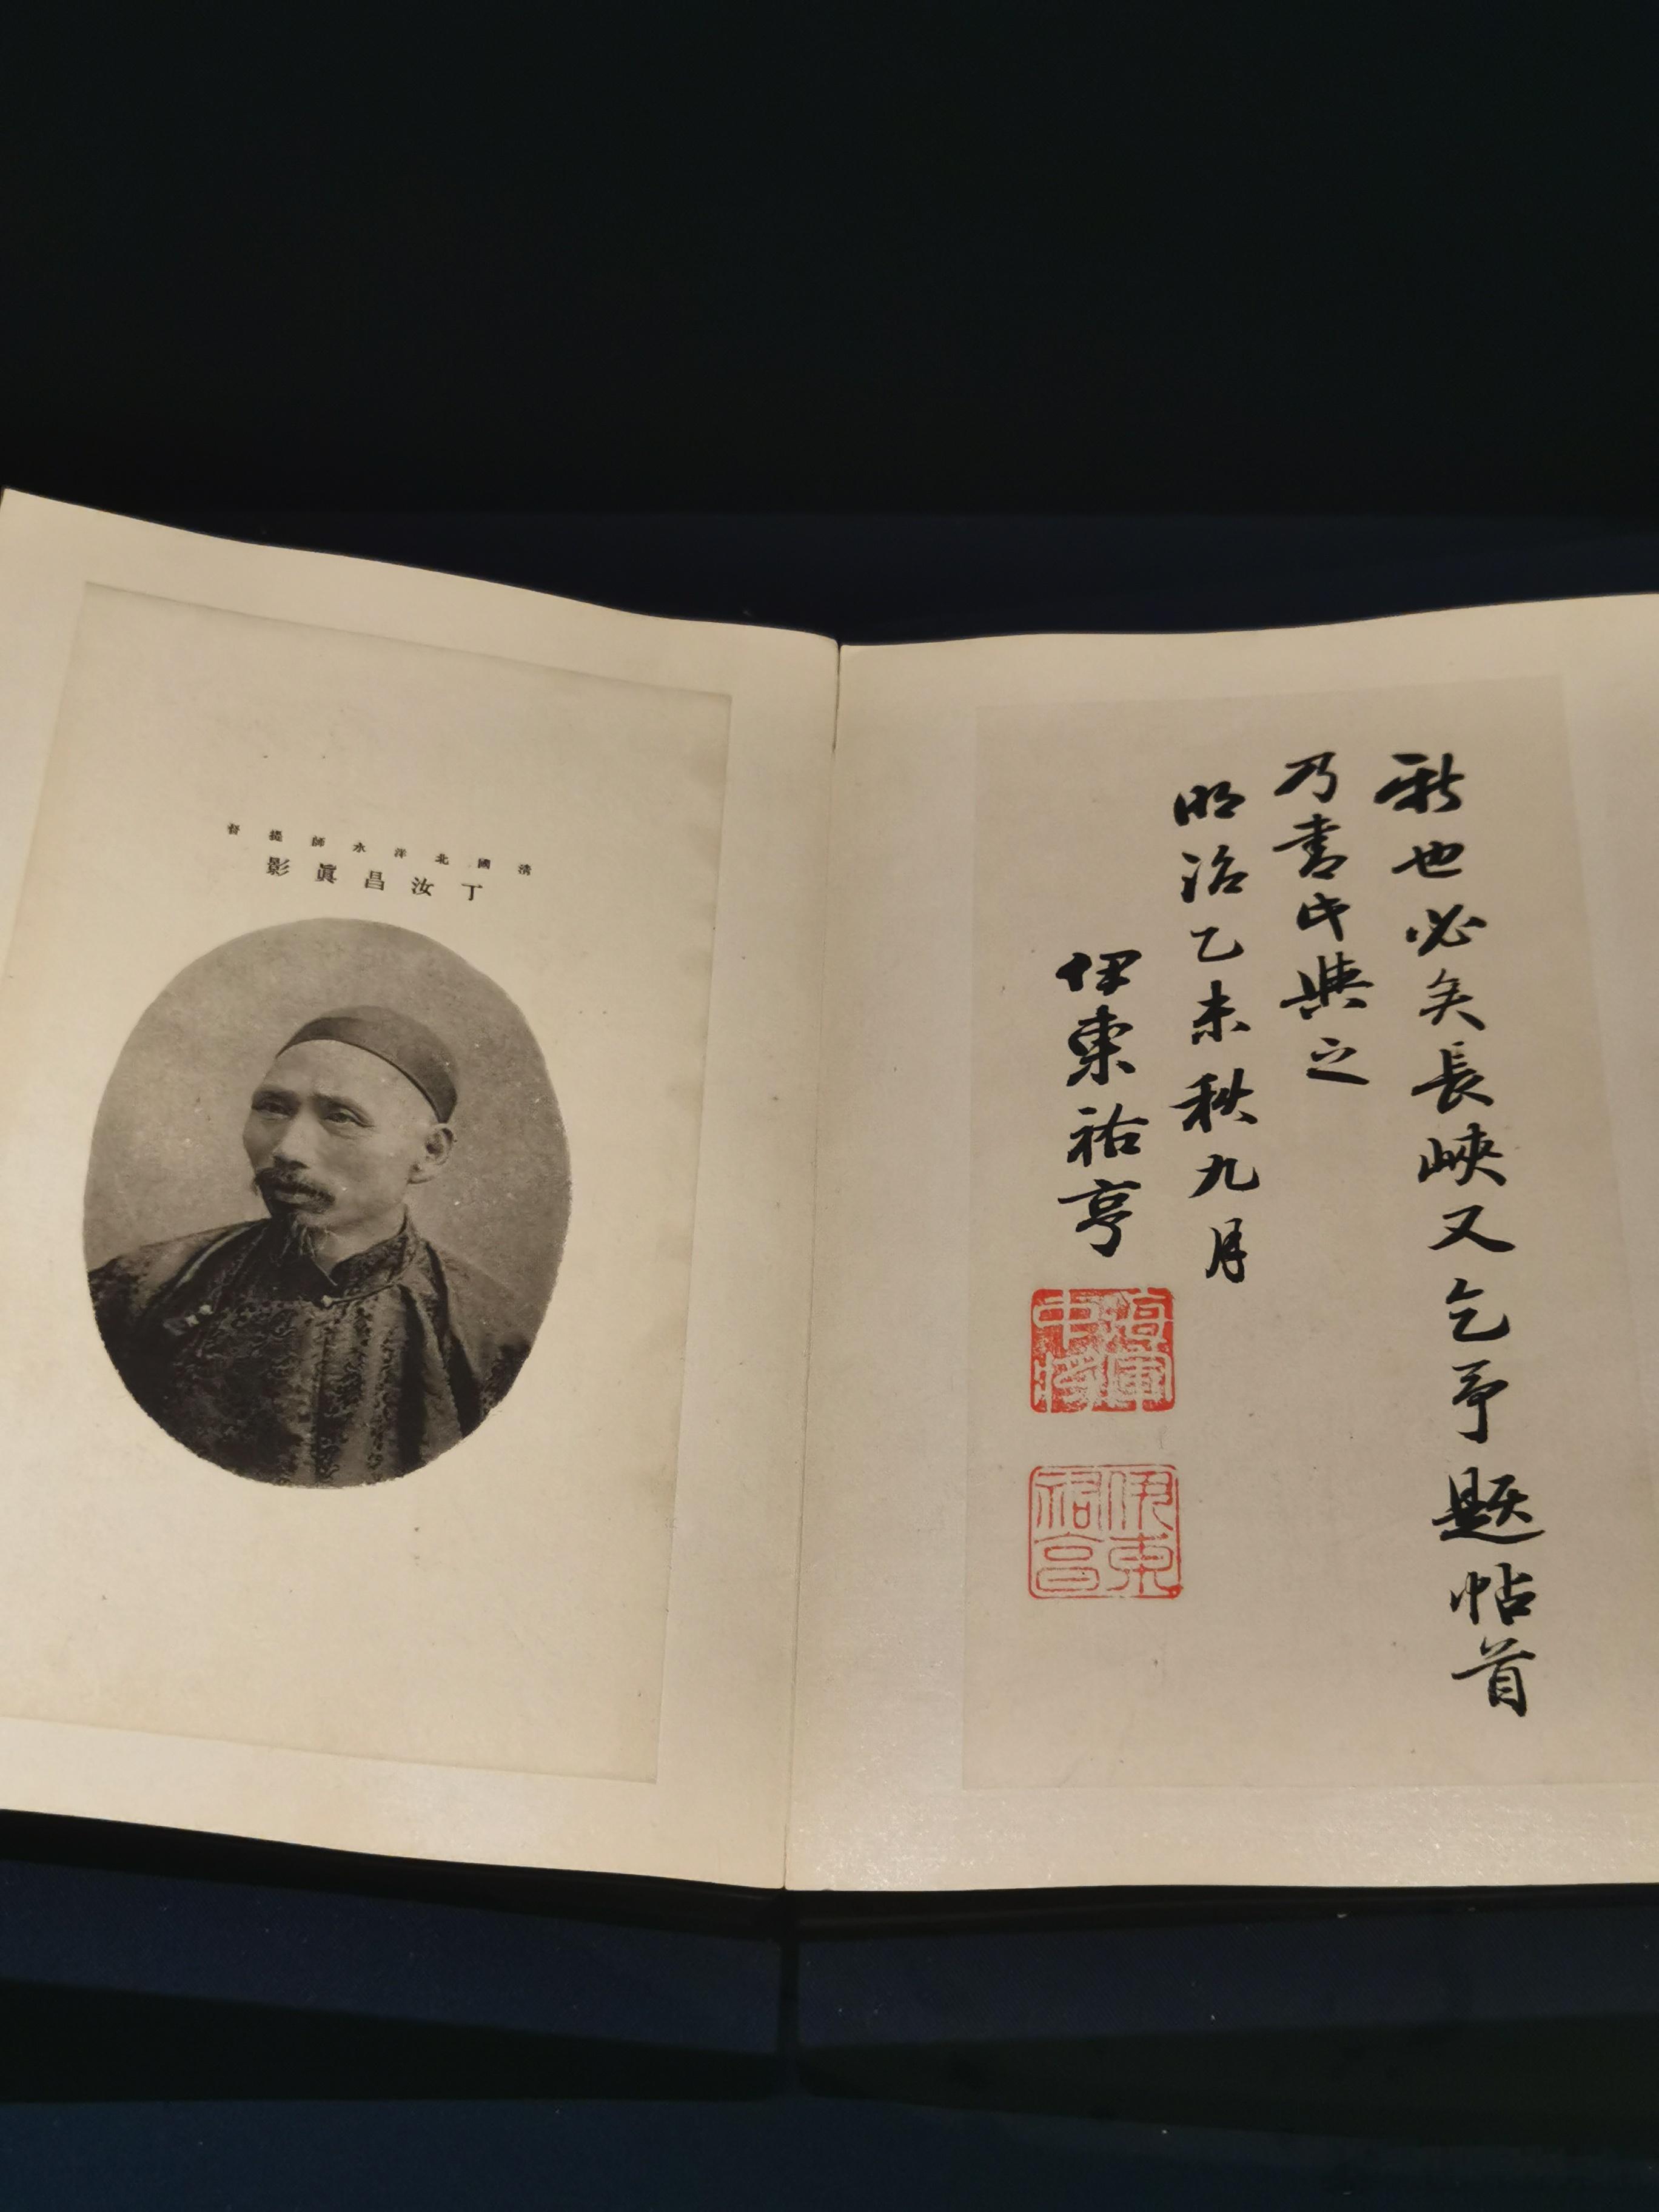 新也必矣長峽又乞予題帖首
乃書此與之
明治乙未秋九月
伊東祐亨
海軍
中將
伊東
祐亨
清國北洋水師提督
丁汝昌眞影